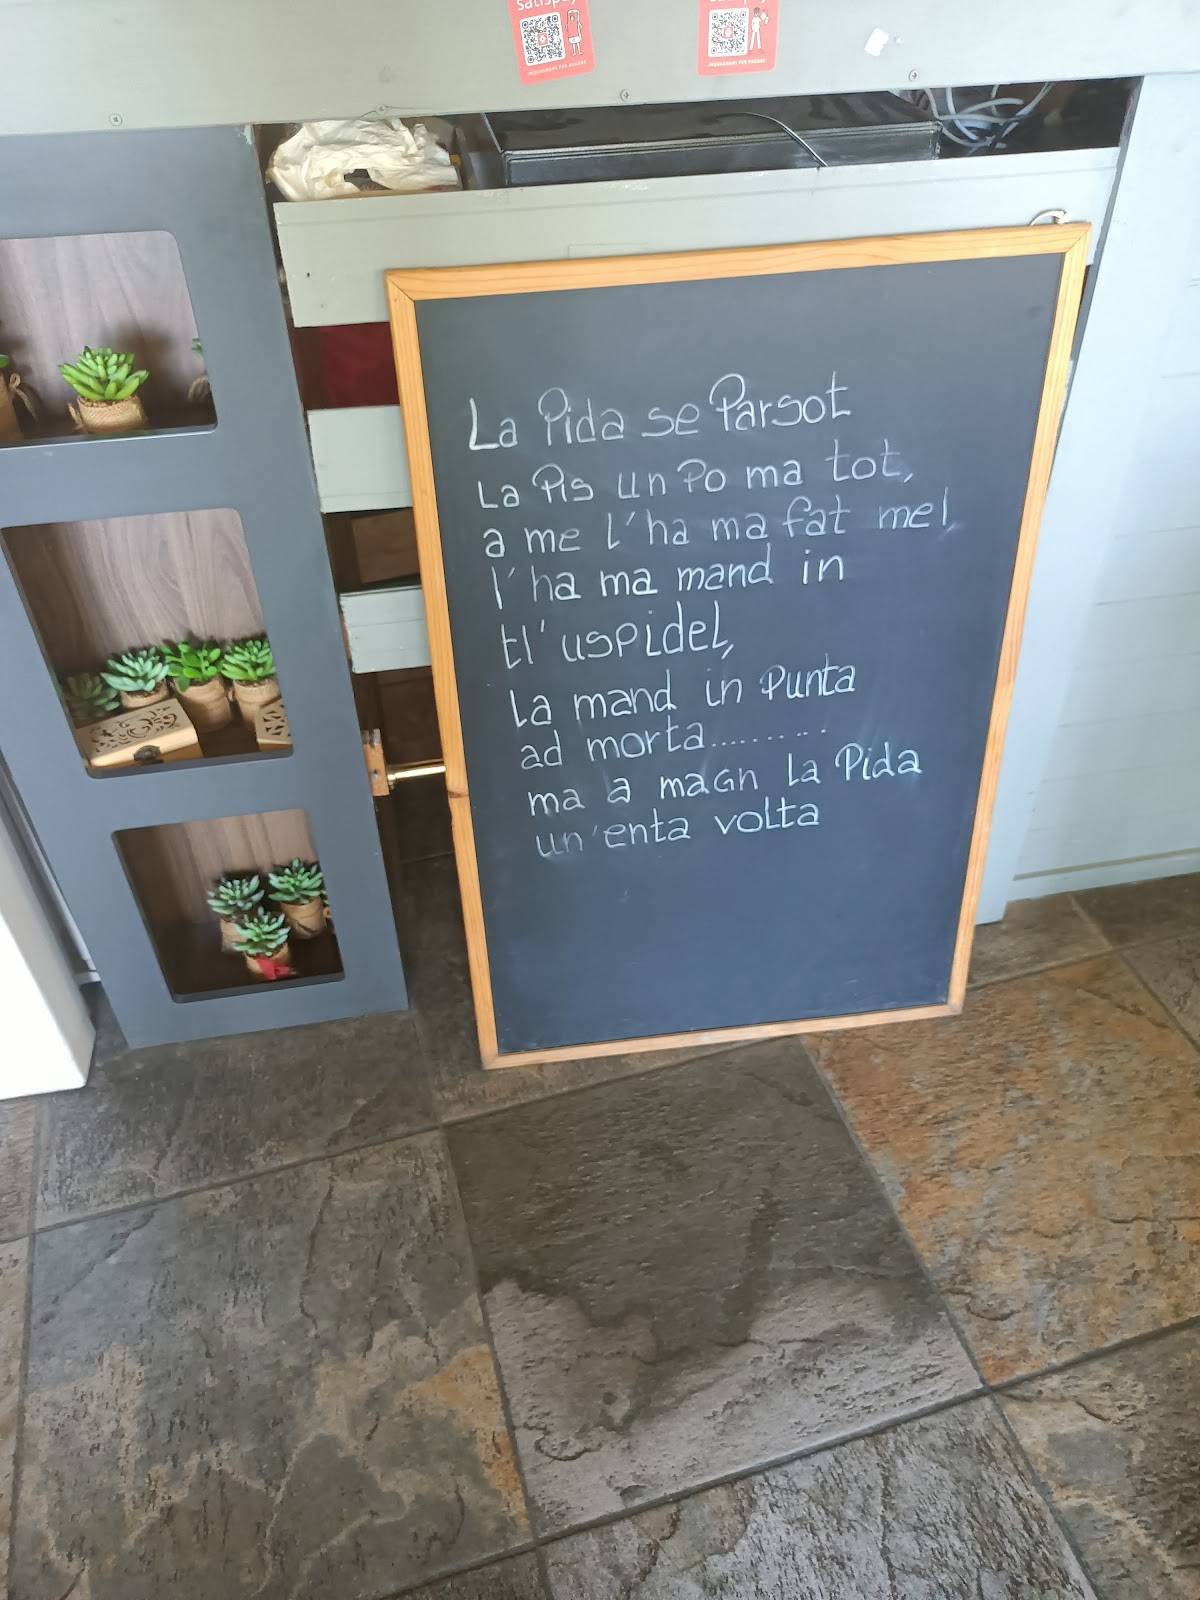 satispay
satispay
La Pida se Parsot
La Pis un Po ma tot,
a me l'ha ma fat mel,
l'ha ma mand in
tl' uspidel,
La mand in Punta
ad morta..........
ma a magn La Pida
un'enta volta